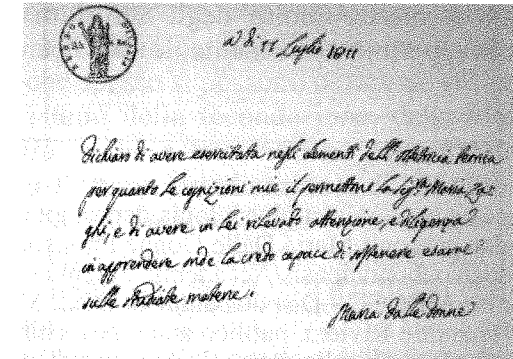 a dì 11 Luglio 1811
Dichiaro di avere esercitata negli elementi dell'ostetricia teorica
per quanto le cognizioni mie il permettono la Sig.ra Maria Za-
ghi, e di avere in lei rilevato attenzione, e diligenza
in apprendere onde la credo capace di sostenere esame
sulle studiate materie.
Maria Dalle Donne